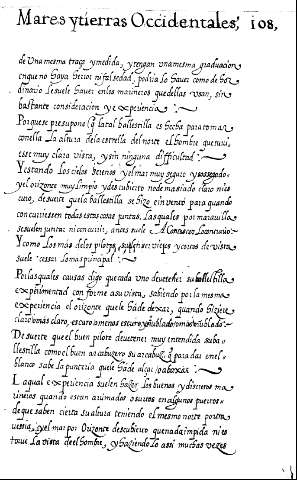 Mares y tierras Occidentales, 108,
de Una mesma traça y medida, y tengan Una mesma graduacion
en que no haya herror ni falsedad, podria lo hauer como de hor
dinario le suele hauer en los marineros que dellas vsan, sin
bastante consideracion y experiencia:
Porque se presupone q̃ la tal ballestilla es hecha para tomar
con ella la altura dela estrella del norte el hombre que tuui
esse muy clara vista, y sin ninguna difficultad:
Y estando los cielos serenos y el mar muy seguro y sossegado
y el orizonte muy limpio y descubierto no demasiado claro ni es
curo, de suerte que la ballestilla se hizo en vento para quando
concurriessen todas estas cosas juntas. Las quales por marauilla
se suelen juntar ni concurrir, antes suele A Contescer lo contrario
Y como los más delos pilotos, suelen ser viejos y cortos de vista
suele cessar lo mas principal:
Por las quales causas digo que cada vno deue tener su ballestilla
experimentada con forme a su vista, sabiendo por la mesma
experiencia el orizonte que le há de dexar, quando hiziere
claro o más claro, escuro a menos escuro o ñublado o mas ñublado
De suerte que el buen piloto deue tener muy entendida su ba
llestilla como el buen arcabuzero su arcabuz, q̃ para dar en el
blanco sabe la punteria que le há de alçar o abaxar:
La qual experiencia suelen hazer los buenos y discretos ma
rineros quando estan arrimados o surtos en algunos puertos
de que saben cierta su altura teniendo el mesmo norte por tra
uessia, y el mar por Orizonte descubierto que nada impida ni es
torue La vista de el hombre, y haziendo lo assi muchas vezes